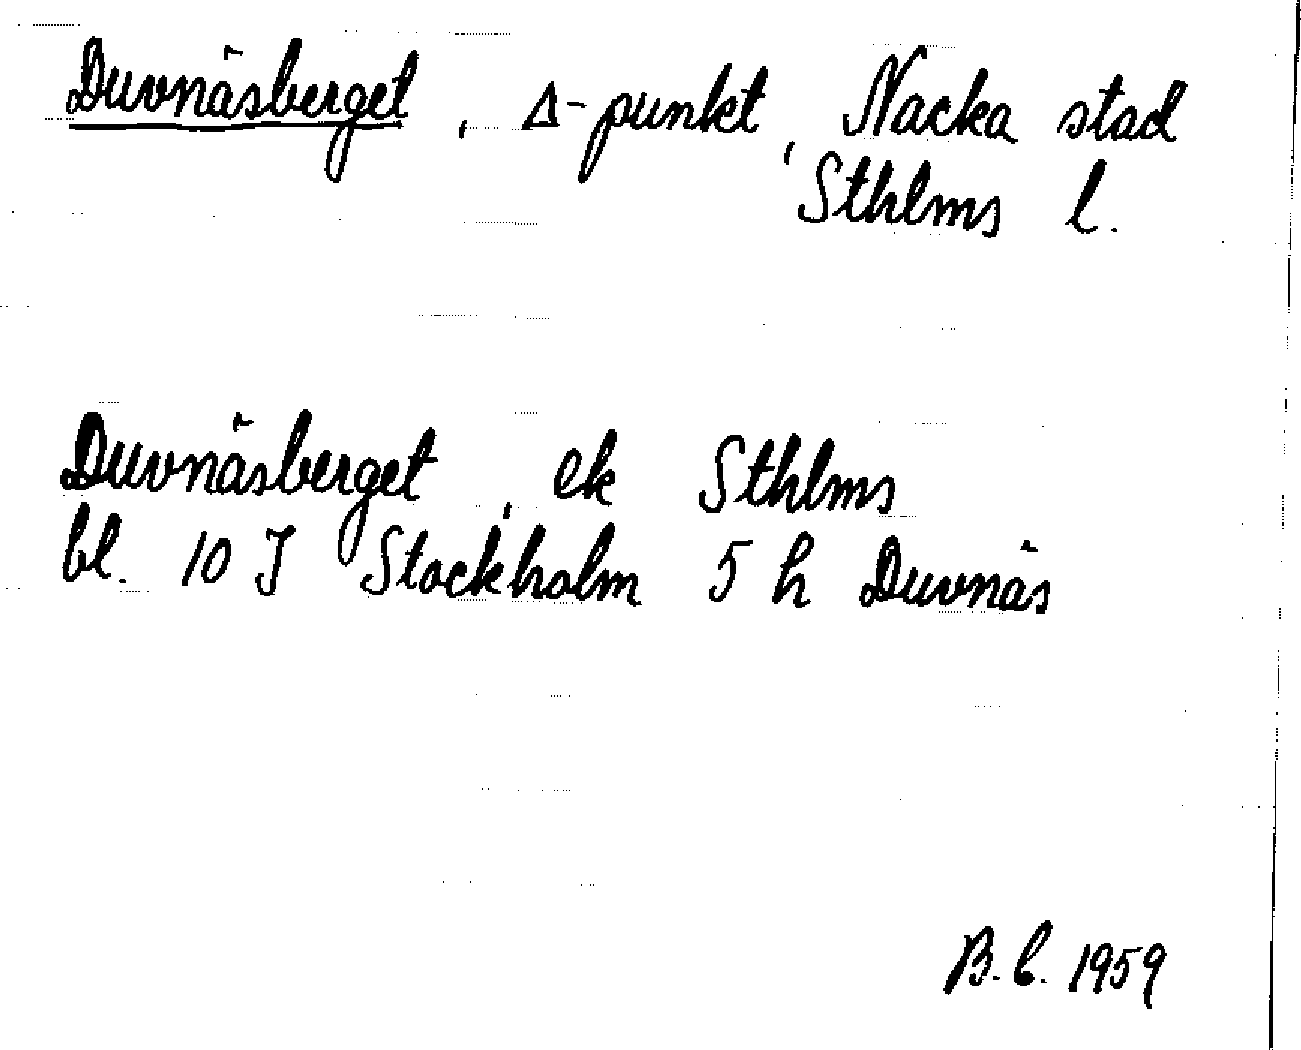 Duvnäsberget, Δ-punkt, Nacka stad
Sthlms l.
Duvnäsberget, ek Sthlms
bl. 10 J Stockholm 5 h Duvnäs
B.b. 1959